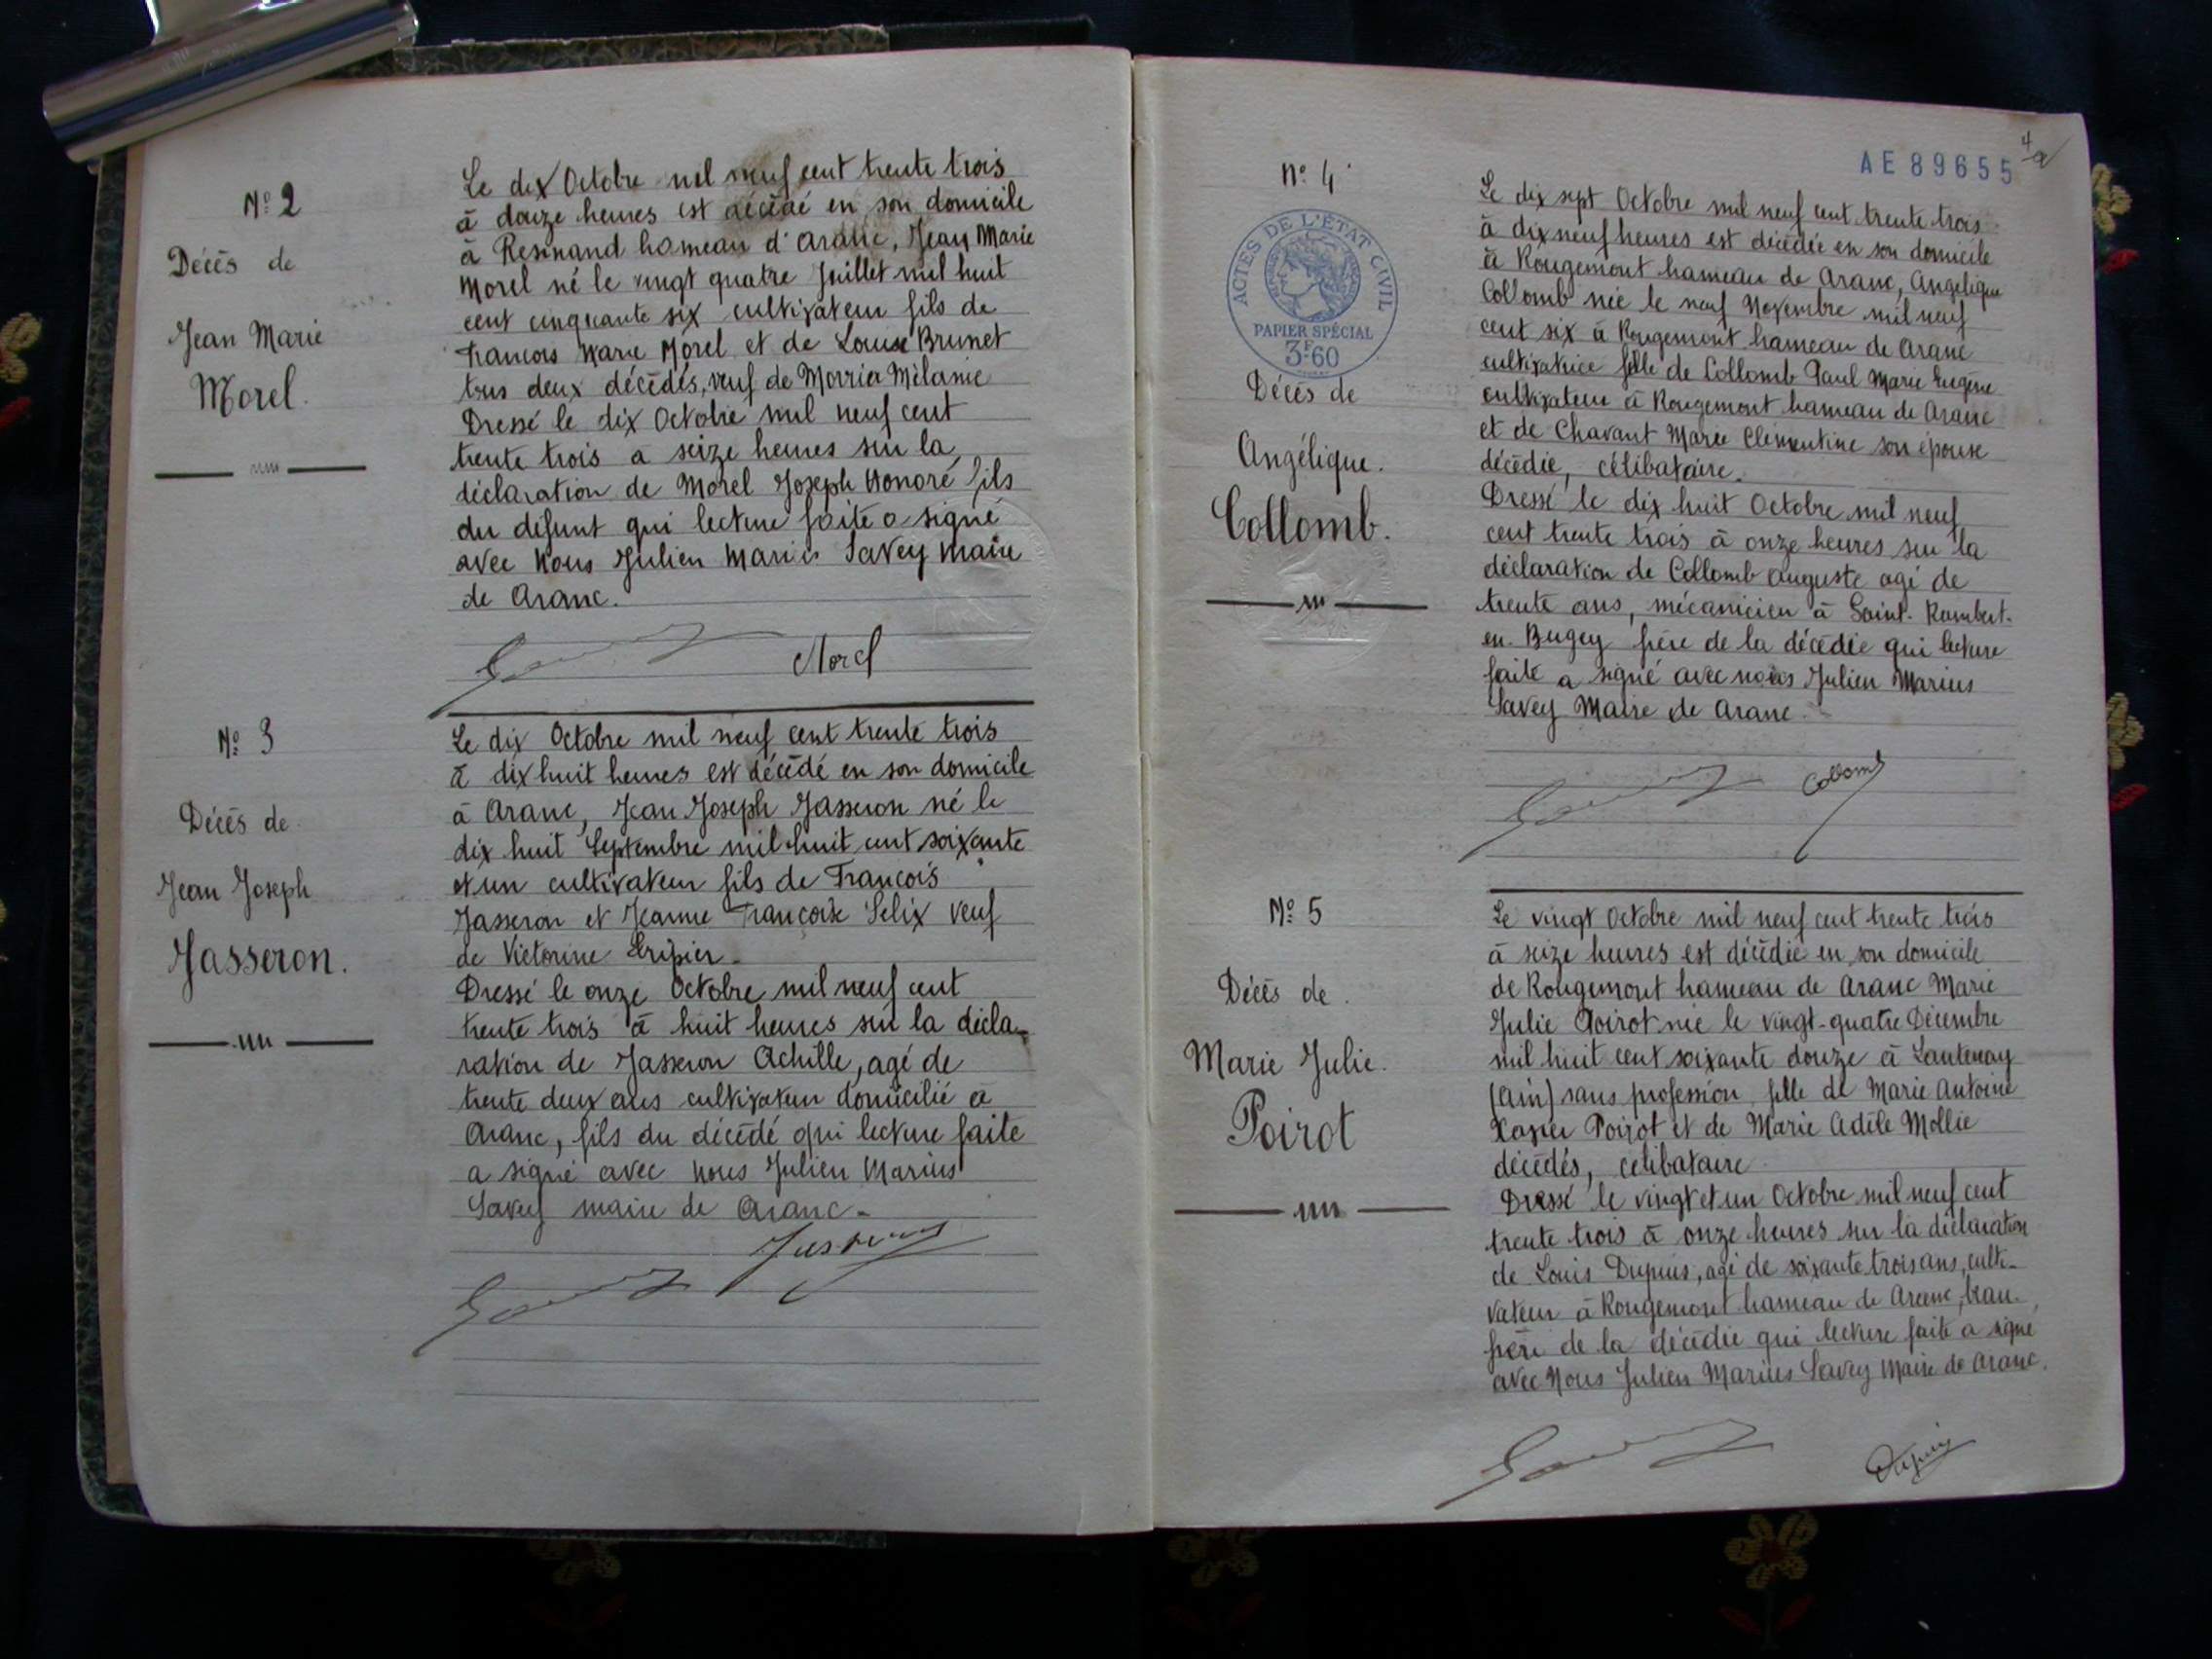 N° 2
Décès de
Jean Marie
Morel.
Le dix Octobre mil neuf cent trente trois
à douze heures est décédé en son domicile
à Resinand hameau d'Aranc, Jean Marie
Morel né le vingt quatre Juillet mil huit
cent cinquante six cultivateur fils de
François Marie Morel et de Louise Brunet
tous deux décédés, veuf de Morrier Mélanie
Dressé le dix Octobre mil neuf cent
trente trois a seize heures sur la
déclaration de Morel Joseph Honoré fils
du défunt qui lecture faite a signé
avec Nous Julien Marius Savey Maire
de Aranc.
Morel
N° 3
Décès de
Jean Joseph
Jasseron.
Le dix Octobre mil neuf cent trente trois
à dix huit heures est décédé en son domicile
à Aranc, Jean Joseph Jasseron né le
dix huit Septembre mil huit cent soixante
et un cultivateur fils de François
Jasseron et Jeanne Françoise Selix veuf
de Victorine
Dressé le onze Octobre mil neuf cent
trente trois à huit heures sur la décla-
ration de Jasseron Achille, agé de
trente deux ans cultivateur domicilié à
Aranc, fils du décédé qui lecture faite
a signé avec nous Julien Marius
Savey maire de Aranc-
4
AE89655
N° 4
ACTES DE L'ÉTAT CIVIL
PAPIER SPÉCIAL
3F60
Décès de
Angélique.
Collomb.
Le dix sept Octobre mil neuf cent trente trois
à dix neuf heures est décédée en son domicile
à Rougemont hameau de Aranc, Angélique
Collomb née le neuf Novembre mil neuf
cent six à Rougemont hameau de Aranc
cultivatrice fille de Collomb Paul Marie Eugène
cultivateur à Rougemont hameau de Aranc
et de Chavant Marie Clémentine son épouse
décédée, célibataire.
Dressé le dix huit Octobre mil neuf
cent trente trois à onze heures sur la
déclaration de Collomb Auguste agé de
trente ans, mécanicien à Saint-Rambert-
en-Bugey frère de la décédée qui lecture
faite a signé avec nous Julien Marius
Savey Maire de Aranc.
Collomb
N° 5
Décès de
Marie Julie.
Poirot
Le vingt Octobre mil neuf cent trente trois
à seize heures est décédée en son domicile
de Rougemont hameau de Aranc Marie
Julie Poirot née le vingt-quatre Décembre
mil huit cent soixante douze à Lantenay
(Ain) sans profession fille de Marie Antoine
Xavier Poirot et de Marie Adèle Mollie
décédés, célibataire
Dressé le vingt et un Octobre mil neuf cent
trente trois à onze heures sur la déclaration
de Louis Dupuis, agé de soixante trois ans, culti-
vateur à Rougemont hameau de Aranc, beau-
frère de la décédée qui lecture faite a signé
avec Nous Julien Marius Savey Maire de Aranc.
Dupuis